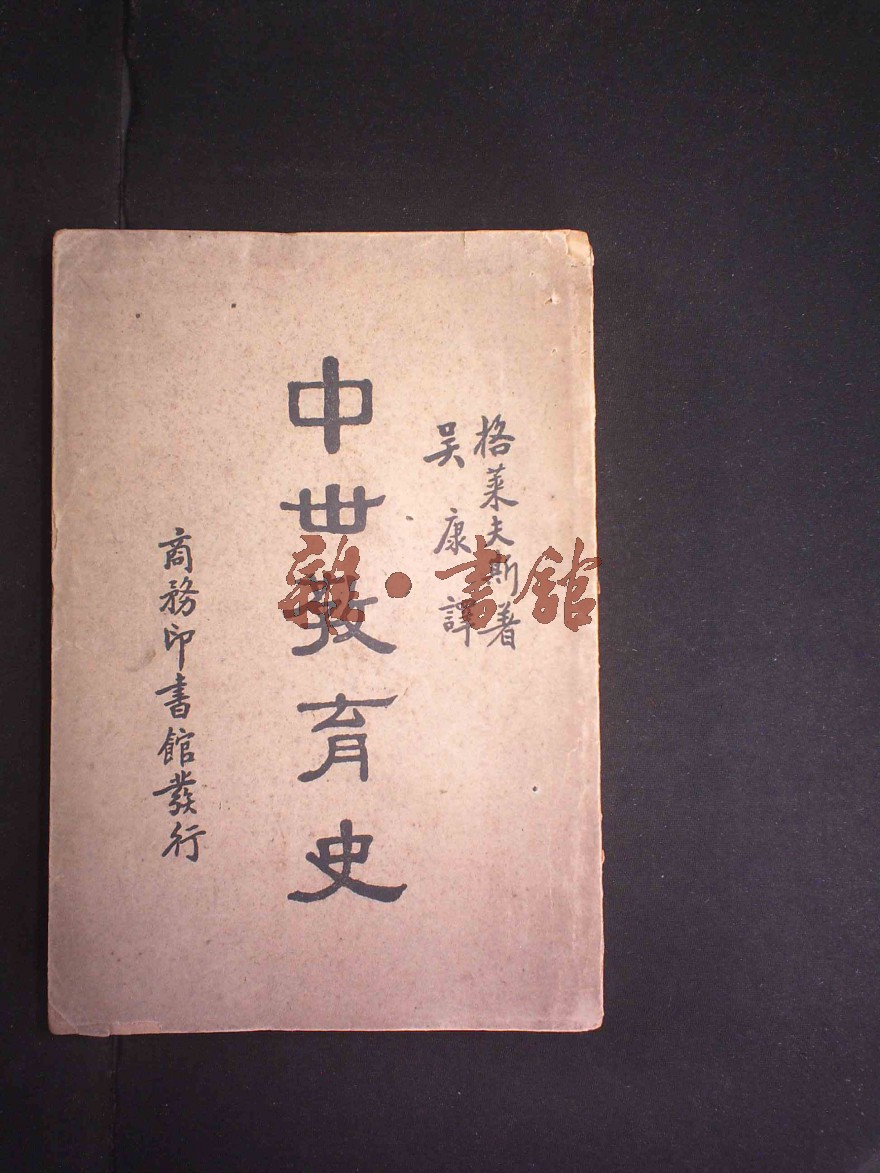 格萊夫斯著
吳康譯
中世教育史
商務印書館發行
雜·書館